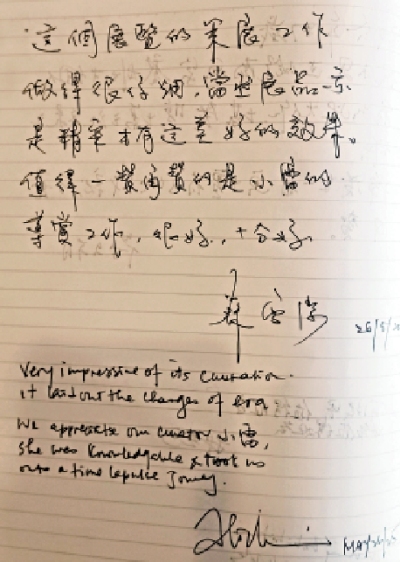 這個展覽的策展工作
做得很仔細,當然展品亦
是精彩才有這美好的效果。
值得一贊再贊的是小雷的
導賞工作,很好,十分好。
26/5/2
Very impressive of its curation.
it laid out the changes of era
We appreciate our curator 小雷,
She was knowledgable & took us
onto a time lapulse Journey.
MAY/26/25